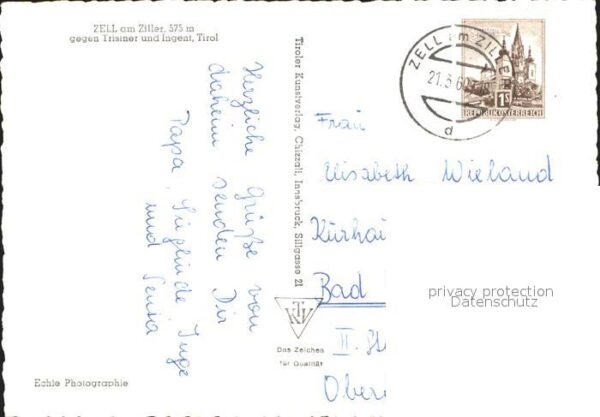 ZELL am Ziller, 575 m
gegen Trisiner und Ingent, Tirol
Herzliche Grüße von
daheim senden Dir
Papa, Sieglinde, Inge
und Sensa
Echte Photographie
Tiroler Kunstverlag, Chizzali, Innsbruck, Sillgasse 21
TKV
Das Zeichen
für Qualität
ZELL am ZILLER
21.8.60
d
1S
REPUBLIK ÖSTERREICH
Frau
Elisabeth Wieland
Kurhai
Bad
II. St
Ober
privacy protection
Datenschutz